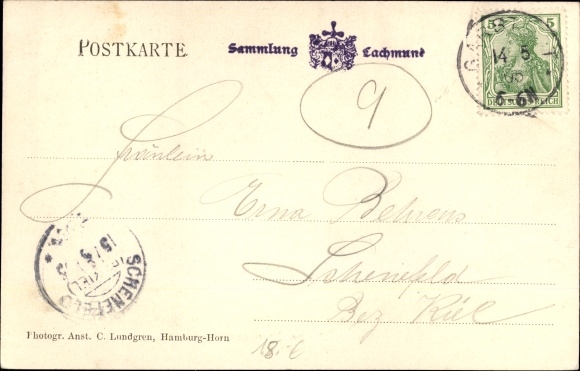 POSTKARTE
Sammlung Lachmund
5 5
14 5
6-
DEUTSCHES REICH
9
Fräulein
Erna Behrens
Schenefeld
Bez Kiel
SCHENEFELD
(BZ. KIEL)
15/5
Photogr. Anst. C. Lundgren, Hamburg-Horn
18,-€